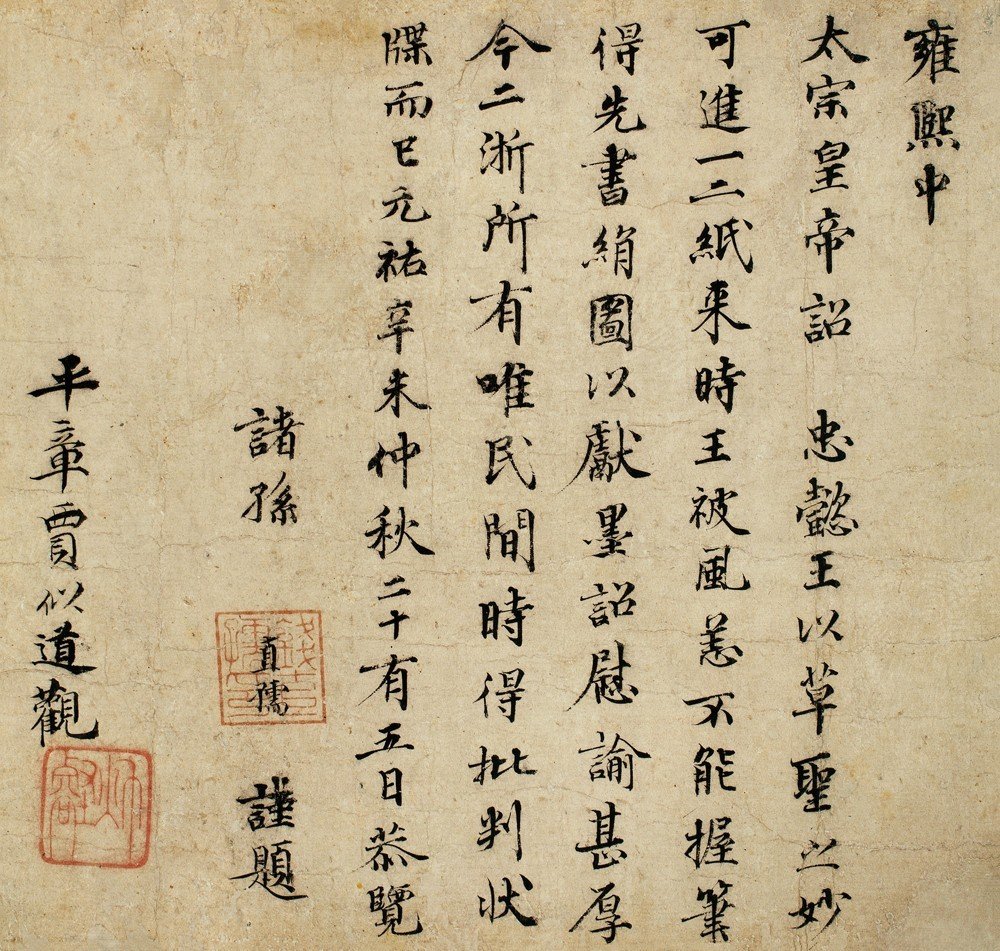 雍熙中
太宗皇帝詔　忠懿王以草聖之妙
可進一二紙来時王被風恙不能握筆
得先書絹圖以獻墨詔慰諭甚厚
今二浙所有唯民間時得批判状
牒而已元祐辛未仲秋二十有五日恭覽
諸孫　直孺　謹題
平章賈似道觀